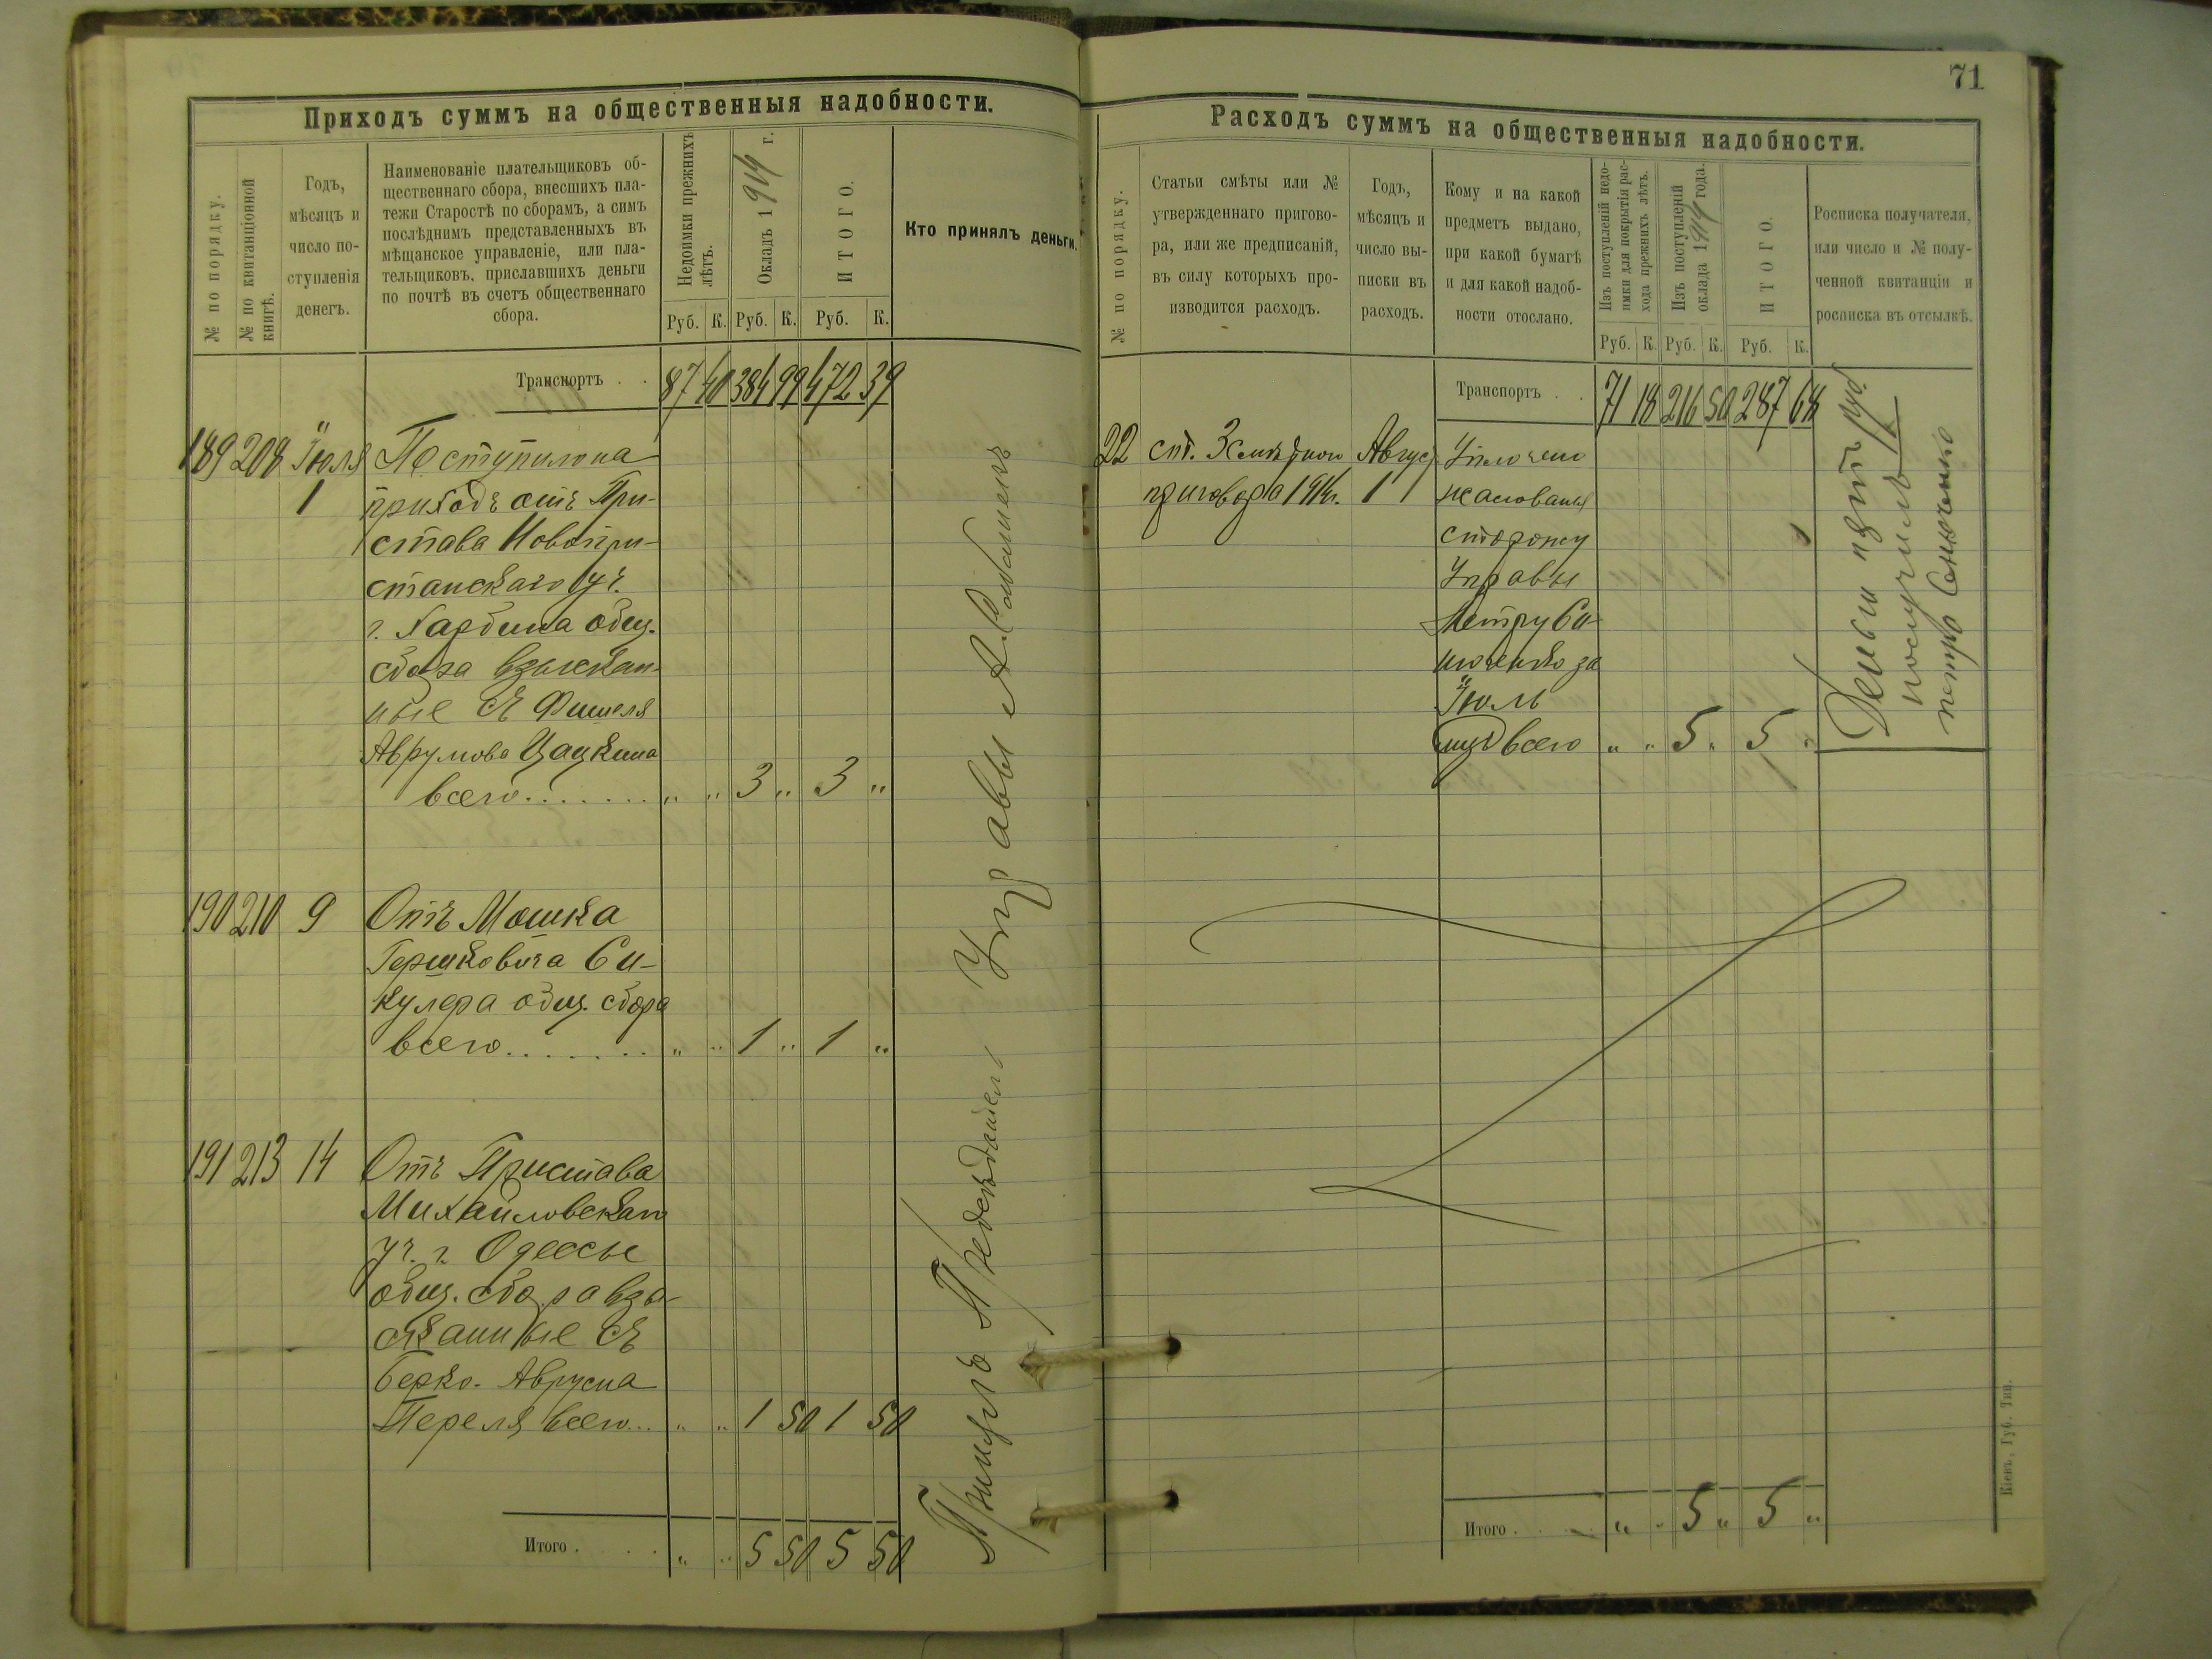 Приходъ суммъ на общественныя надобности.
№ по порядку.
№ по квитанціонной
книгѣ.
Годъ,
мѣсяцъ и
число по-
ступленія
денегъ.
Наименованіе плательщиковъ об-
щественнаго сбора, внесшихъ пла-
тежи Старостѣ по сборамъ, а симъ
послѣднимъ представленныхъ въ
мѣщанское управленіе, или пла-
тельщиковъ, приславшихъ деньги
по почтѣ въ счетъ общественнаго
сбора.
Недоимки прежнихъ
лѣтъ.
Окладъ 1914 г.
ИТОГО.
Кто принялъ деньги.
Руб. К. Руб. К. Руб. К.
Транспортъ . . 87 40 384 99 472 39
189 208 Іюля Поступило на
1 приходъ отъ При-
става Новопри-
станскаго уч.
г. Харбина общ.
сбора взыскан-
ные съ Фишеля
Аврумова Цацкина
всего . . . . . . . „ „ 3 „ 3 „
190 210 9 Отъ Мошка
Гершковича Си-
кулера общ. сбора
всего . . . . . . . „ „ 1 „ 1 „
191 213 14 Отъ Пристава
Михайловскаго
уч. г. Одессы
общ. сбора взы-
сканные съ
Берко-Аврума
Переля всего... „ „ 1 50 1 50
Итого . . . . „ „ 5 50 5 50
Принялъ Предсѣдатель Управы
71
Расходъ суммъ на общественныя надобности.
№ по порядку.
Статьи смѣты или №
утвержденнаго пригово-
ра, или же предписаній,
въ силу которыхъ про-
изводится расходъ.
Годъ,
мѣсяцъ и
число вы-
писки въ
расходъ.
Кому и на какой
предметъ выдано,
при какой бумагѣ
и для какой надоб-
ности отослано.
Изъ поступленій недо-
имки для покрытія рас-
хода прежнихъ лѣтъ.
Изъ поступленій
оклада 1914 года.
ИТОГО.
Росписка получателя,
или число и № полу-
ченной квитанціи и
росписка въ отсылкѣ.
Руб. К. Руб. К. Руб. К.
Транспортъ . . 71 18 216 50 287 68
22 ст. 3 смѣтнаго Август Уплочено
приговора 1914г. 1 жалованья
сторожу
Управы
Петру Си-
за
Іюль
всего „ „ 5 „ 5 „
Деньги пять руб.
получилъ
Петро
Итого . . . . „ „ 5 „ 5 „
Кіевъ, Губ. Тип.